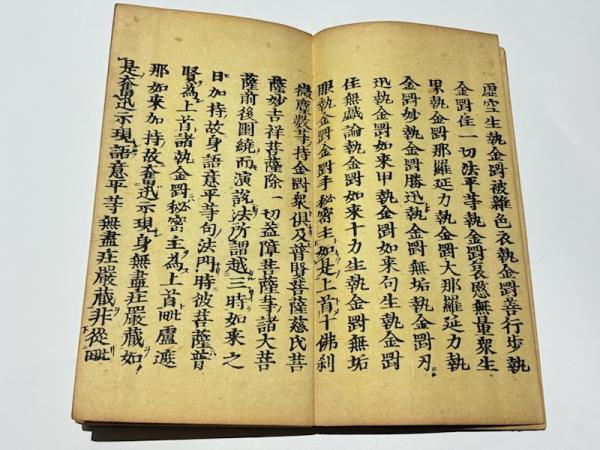 虚空生執金剛被雜色衣執金剛善行步執
金剛住一切法平等執金剛哀愍無量衆生
界執金剛那羅延力執金剛大那羅延力執
金剛妙執金剛勝迅執金剛無垢執金剛刃
迅執金剛如來甲執金剛如來句生執金剛
住無戲論執金剛如來十力生執金剛無垢
眼執金剛金剛手秘密主如是上首十佛刹
微塵數等持金剛衆俱及普賢菩薩慈氏菩
薩妙吉祥菩薩除一切盖障菩薩等諸大菩
薩前後圍繞而演說法所謂越三時如來之
日加持故身語意平等句法門時彼菩薩普
賢為上首諸執金剛秘密主為上首毗盧遮
那如來加持故奮迅示現身無盡莊嚴藏如
是奮迅示現語意平等無盡莊嚴藏非從毗